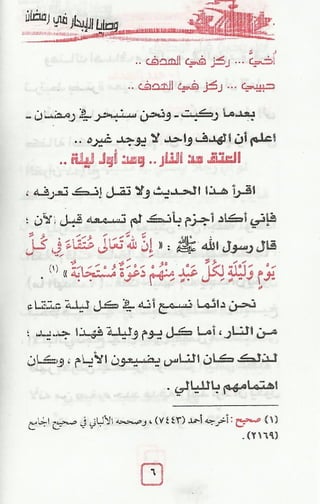 وصايا الإبحار في رمضان
أخيَّ ... ركز في الهدف ..
حبيبي ... ركز في الهدف ..
بعدما ركبت - ونحن سنبحر في رمضان -
اعلم أن الهدف واحد لا يوجد غيره ..
العتق من النار .. ومن أول ليلة ..
اقرأ هذا الحديث ولا تقل إنك تعرفه ،
فإني أكاد أجزم بأنك لم تسمعه قبل الآن ؛
قال رسول الله ﷺ : « إِنَّ لِلَّهِ تَعَالَى عُتَقَاءَ فِي كُلِّ
يَوْمٍ وَلَيْلَةٍ لِكُلِّ عَبْدٍ مِنْهُمْ دَعْوَةٌ مُسْتَجَابَةٌ » (١).
نحن دائما نسمع أنه في كل ليلة عتقاء
من النار ، أما كل يوم وليلة فهذا جديد ؛
لذلك كان الناس يضيعون الأيام ، وكان
اهتمامهم بالليالي .
(١) صحيح : أخرجه أحمد (٧٤٤٣) ، وصححه الألباني في صحيح الجامع
(٢١٦٩) .
٦